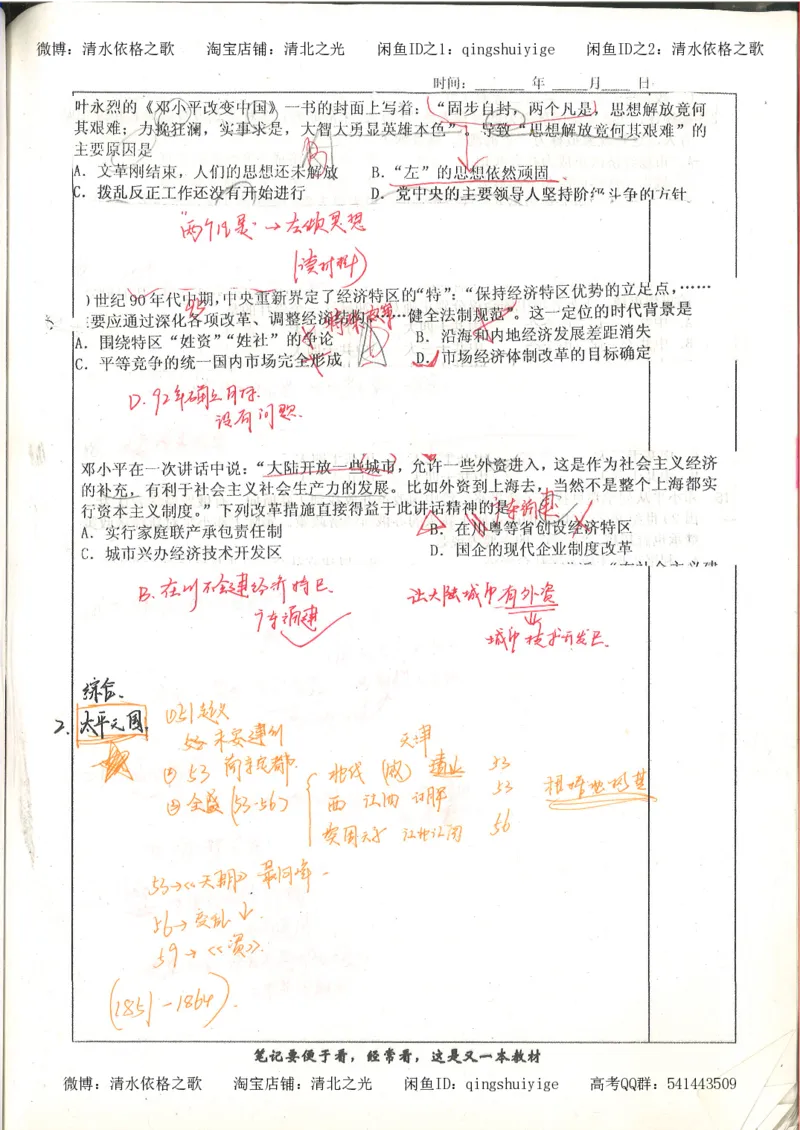 微博：清水依格之歌 淘宝店铺：清北之光 闲鱼ID之1：qingshuiyige 闲鱼ID之2：清水依格之歌
时间：______ 年 ____月____ 日
叶永烈的《邓小平改变中国》一书的封面上写着：“固步自封，两个凡是，思想解放竟何
其艰难；力挽狂澜，实事求是，大智大勇显英雄本色”。导致“思想解放竟何其艰难”的
主要原因是
A．文革刚结束，人们的思想还未解放 B．“左”的思想依然顽固
C．拨乱反正工作还没有开始进行 D．党中央的主要领导人坚持阶级斗争的方针
“两个凡是”→左倾思想
(读材料)
世纪90年代中期，中央重新界定了经济特区的“特”：“保持经济特区优势的立足点，……
要应通过深化各项改革、调整经济结构……健全法制规范”。这一定位的时代背景是
A．围绕特区“姓资”“姓社”的争论 B．沿海和内地经济发展差距消失
C．平等竞争的统一国内市场完全形成 D．市场经济体制改革的目标确定
D. 92年确立目标
没有问题.
邓小平在一次讲话中说：“大陆开放一些城市，允许一些外资进入，这是作为社会主义经济
的补充，有利于社会主义社会生产力的发展。比如外资到上海去，当然不是整个上海都实
行资本主义制度。”下列改革措施直接得益于此讲话精神的是
广东福建
A．实行家庭联产承包责任制 B．在川粤等省创设经济特区
C．城市兴办经济技术开发区 D．国企的现代企业制度改革
B. 在川不会建经济特区. 让大陆城市有外资
广东福建
城市技术开发区.
综合.
2. 太平天国. ①51起义
永安建制
② 53 南京定都. 天津
③ 全盛 (53-56) 北伐 (败) 53
西 53
56
53→《天朝》最高峰
56→变乱↓
59→《资》.
(1851-1864).
笔记要便于看，经常看，这是又一本教材
微博：清水依格之歌 淘宝店铺：清北之光 闲鱼ID：qingshuiyige 高考QQ群：541443509